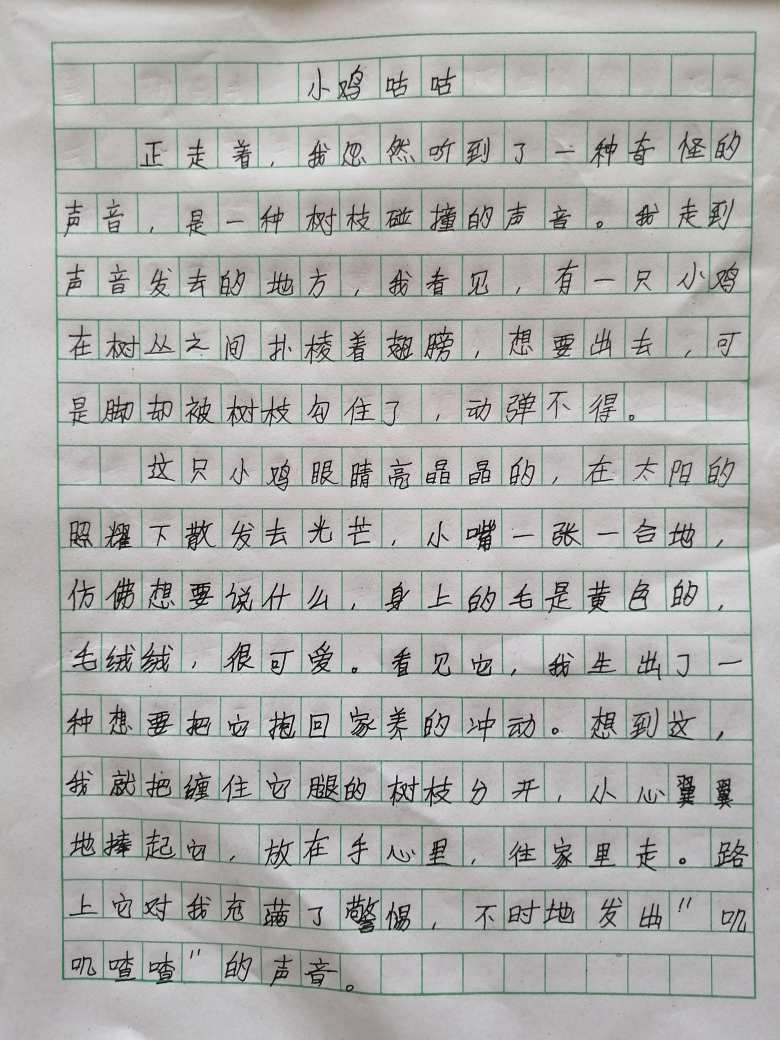 小鸡咕咕
正走着，我忽然听到了一种奇怪的
声音，是一种树枝碰撞的声音。我走到
声音发去的地方，我看见，有一只小鸡
在树丛之间扑棱着翅膀，想要出去，可
是脚却被树枝勾住了，动弹不得。
这只小鸡眼睛亮晶晶的，在太阳的
照耀下散发去光芒，小嘴一张一合地，
仿佛想要说什么，身上的毛是黄色的，
毛绒绒，很可爱。看见它，我生出了一
种想要把它抱回家养的冲动。想到这，
我就把缠住它腿的树枝分开，小心翼翼
地捧起它，放在手心里，往家里走。路
上它对我充满了警惕，不时地发出"叽
叽喳喳"的声音。